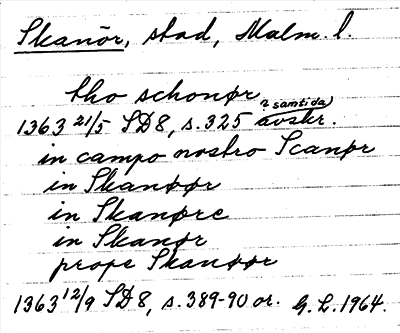 Skanör, stad, Malm. l.
tho schonør
(? samtida)
1363 21/5 SD8, s. 325 avskr.
in campo nostro Scanør
in Skanøør
in Skanøre
in Skanør
prope Skanøør
1363 12/9 SD8, s. 389-90 or. G. L. 1964.